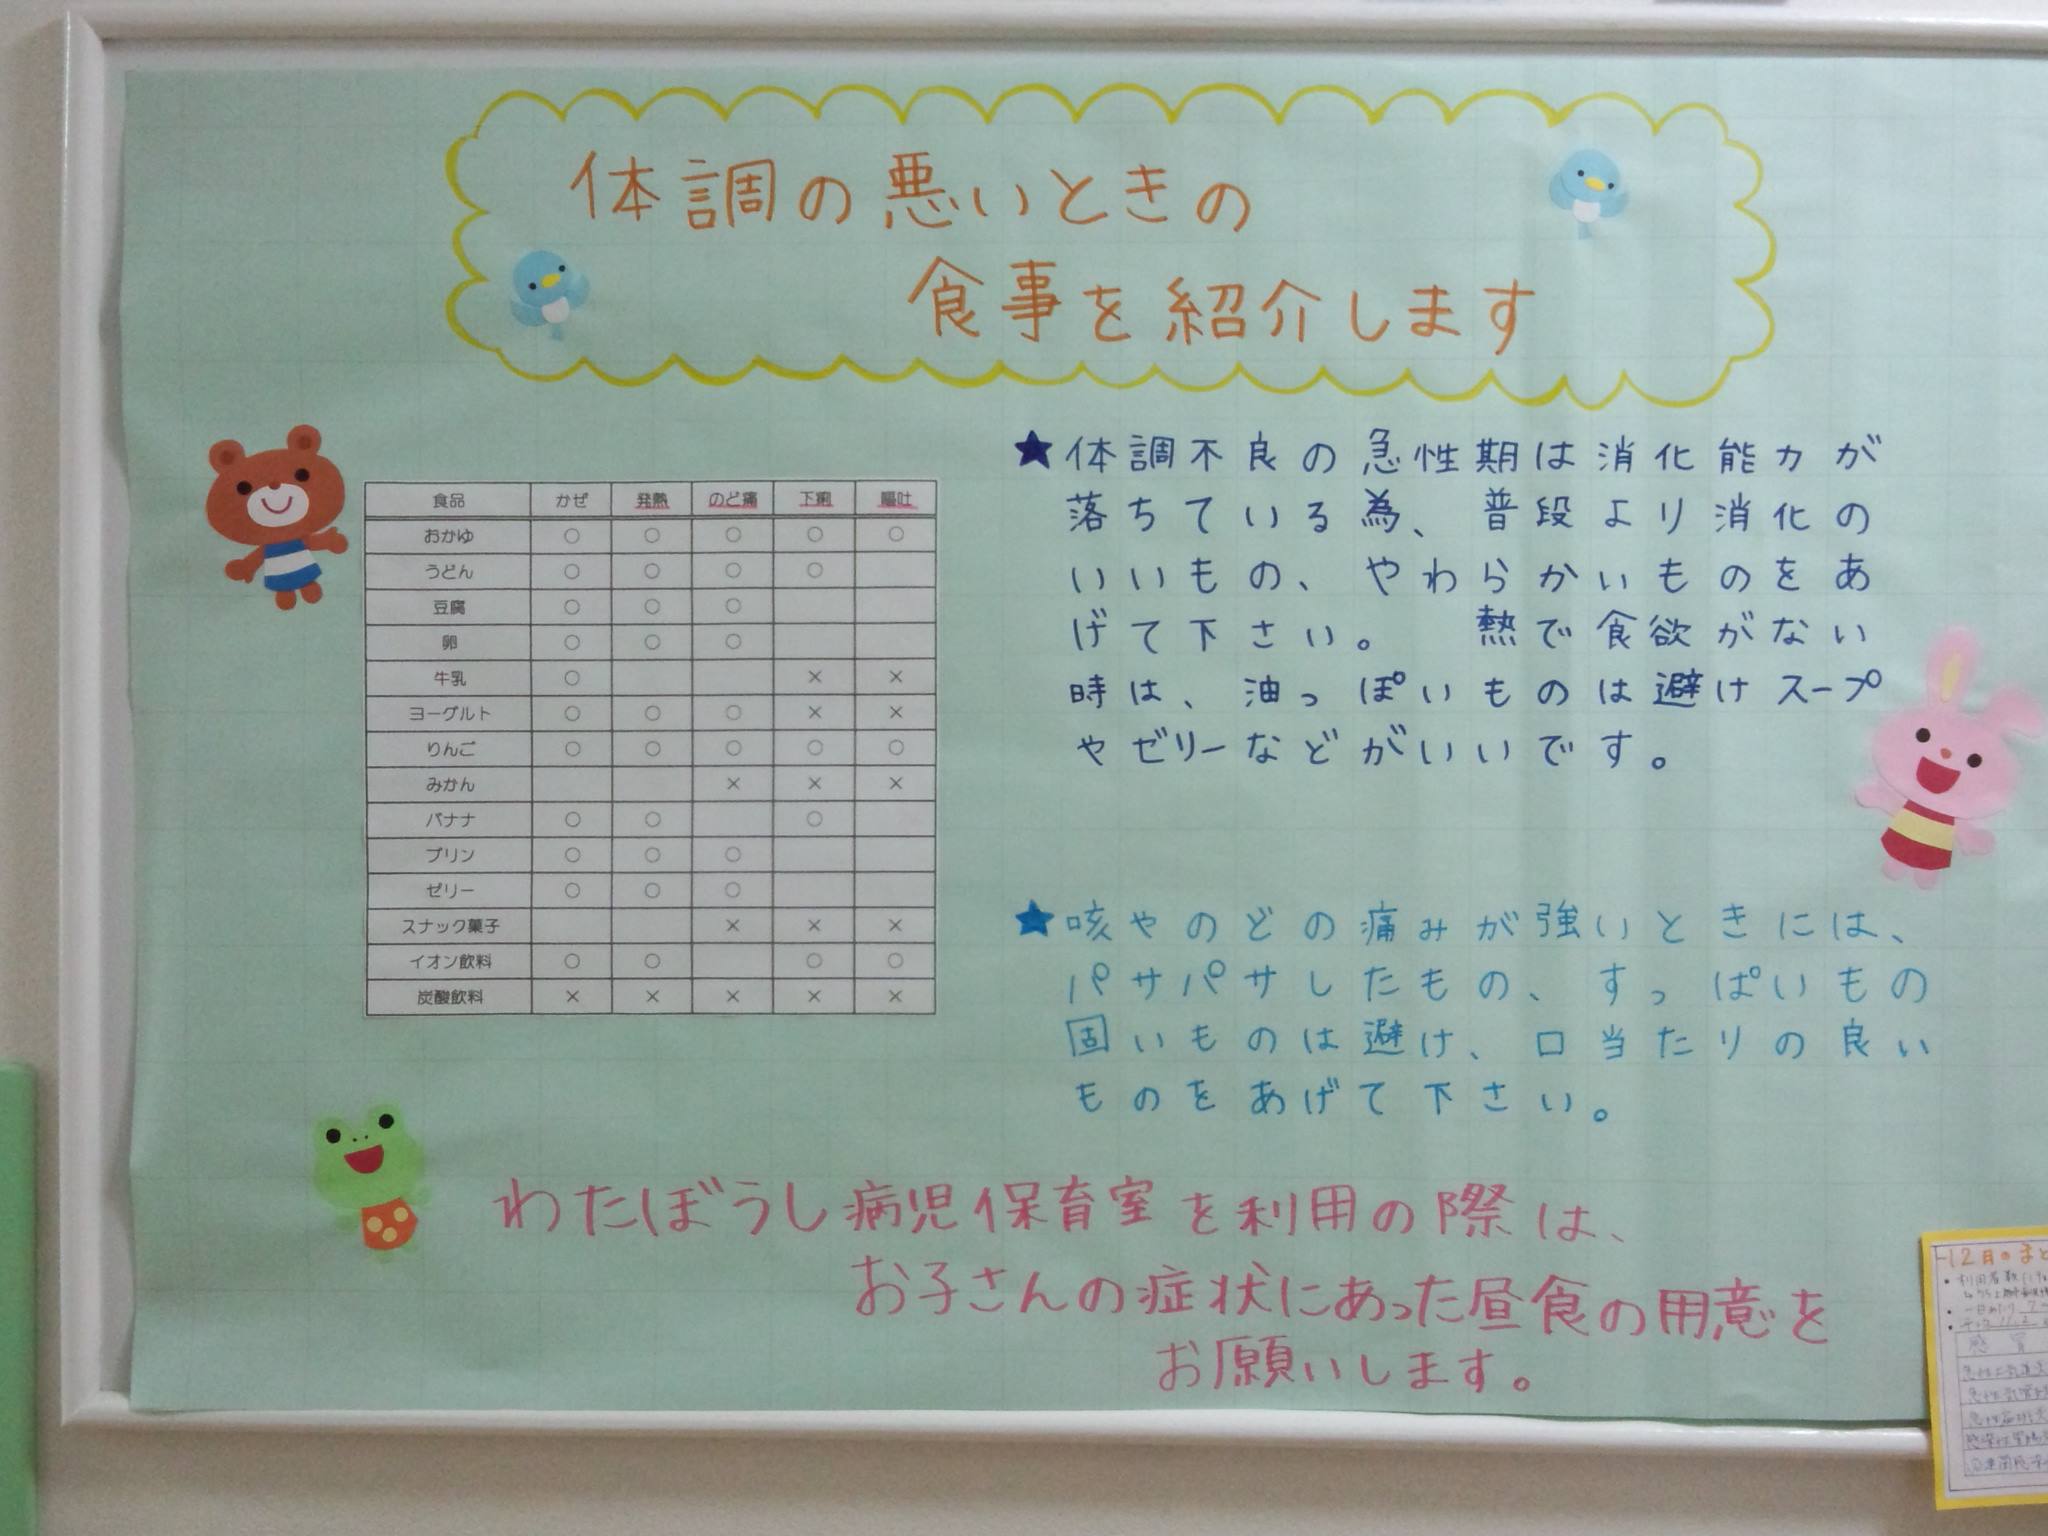 体調の悪いときの
食事を紹介します
食品 かぜ 発熱 のど痛 下痢 嘔吐
おかゆ ○ ○ ○ ○ ○
うどん ○ ○ ○ ○
豆腐 ○ ○ ○
卵 ○ ○ ○
牛乳 ○ × ×
ヨーグルト ○ ○ ○ × ×
りんご ○ ○ ○ ○ ○
みかん × × ×
バナナ ○ ○ ○
プリン ○ ○ ○
ゼリー ○ ○ ○
スナック菓子 × × ×
イオン飲料 ○ ○ ○ ○
炭酸飲料 × × × × ×
★体調不良の急性期は消化能力が
落ちている為、普段より消化の
いいもの、やわらかいものをあ
げて下さい。 熱で食欲がない
時は、油っぽいものは避けスープ
やゼリーなどがいいです。
★咳やのどの痛みが強いときには、
パサパサしたもの、すっぱいもの
固いものは避け、口当たりの良い
ものをあげて下さい。
わたぼうし病児保育室を利用の際は、
お子さんの症状にあった昼食の用意を
お願いします。
12月のまと
利用者数
一日あたり
感冒